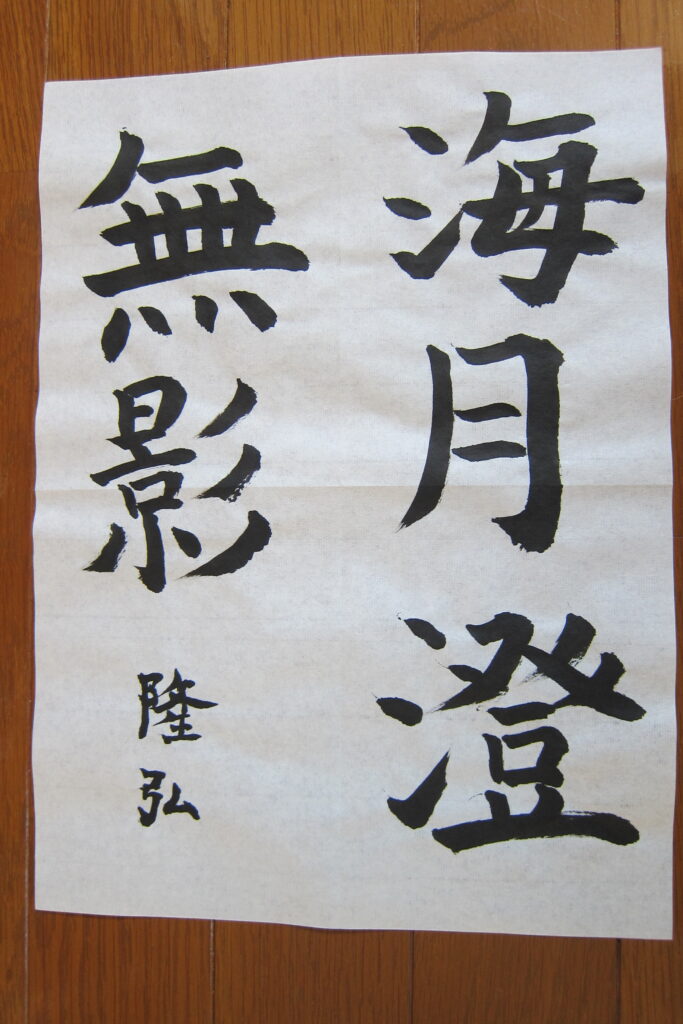 海月澄
無影
隆弘